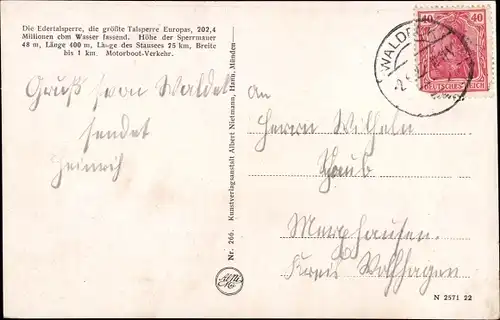 Die Edertalsperre, die größte Talsperre Europas, 202,4
Millionen cbm Wasser fassend. Höhe der Sperrmauer
48 m, Länge 400 m, Länge des Stausees 25 km, Breite
bis 1 km. Motorboot-Verkehr.
Gruß von Waldek
sendet
Heinrich
Nr. 266. Kunstverlagsanstalt Albert Nietmann, Hann. Münden
An
Herrn Wilhelm
Schaub
Kreis Wolfhagen
40 40
DEUTSCHES REICH
WALDECK
N 2571 22